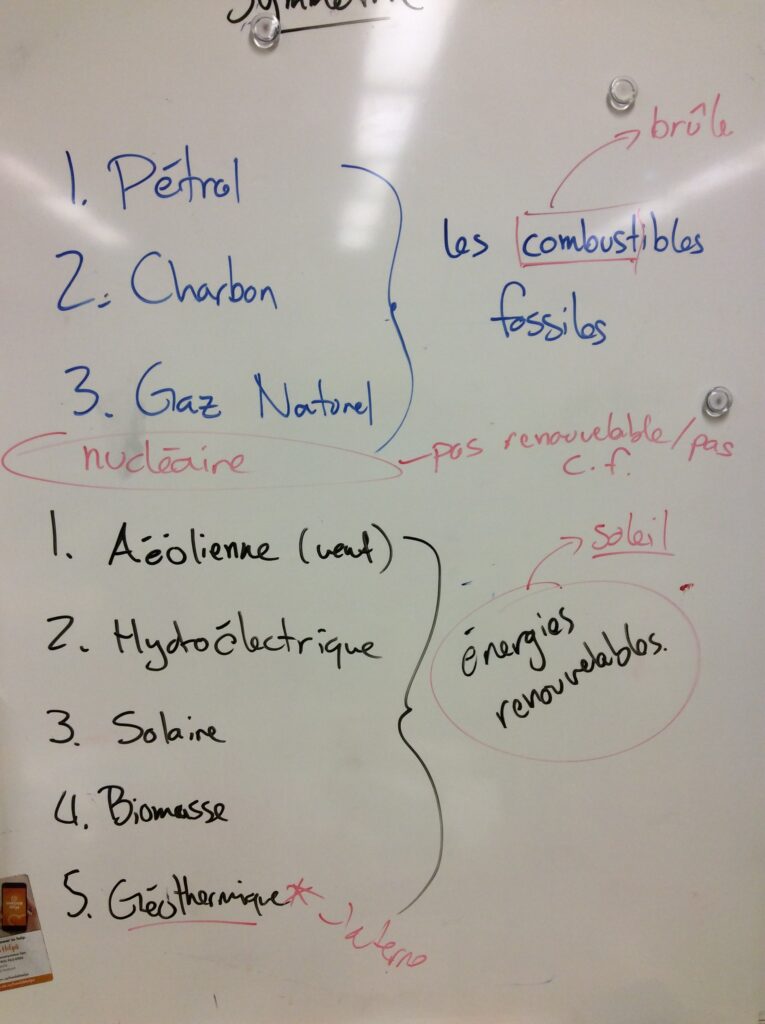 Symmétrie
1. Pétrol
2. Charbon
3. Gaz Naturel
les combustibles
fossiles
brûle
nucléaire
pas renouvelable/pas
c.f.
1. Aéolienne (vent)
2. Hydroélectrique
3. Solaire
4. Biomasse
5. Géothermique*
soleil
énergies
renouvelables.